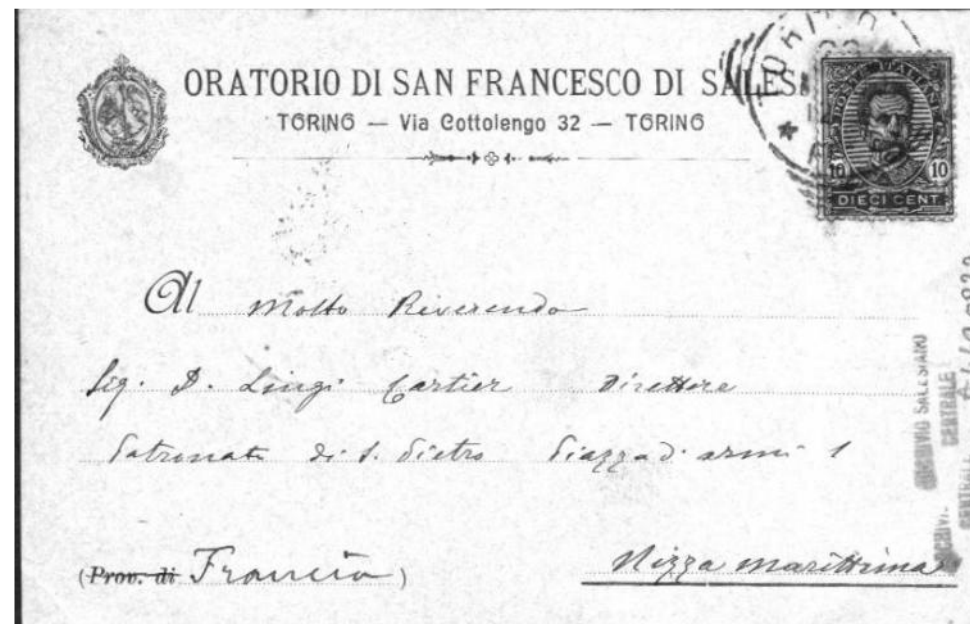 ORATORIO DI SAN FRANCESCO DI SALES
TORINO — Via Cottolengo 32 — TORINO
TORINO
POSTE ITALIANE
10 10
DIECI CENT
Al Molto Reverendo
Sig. D. Luigi Cartier Direttore
Patronato di S. Pietro Piazza d'armi 1
(Prov. di Francia)
Nizza marittima
ARCHIVIO SALESIANO
CENTRALE